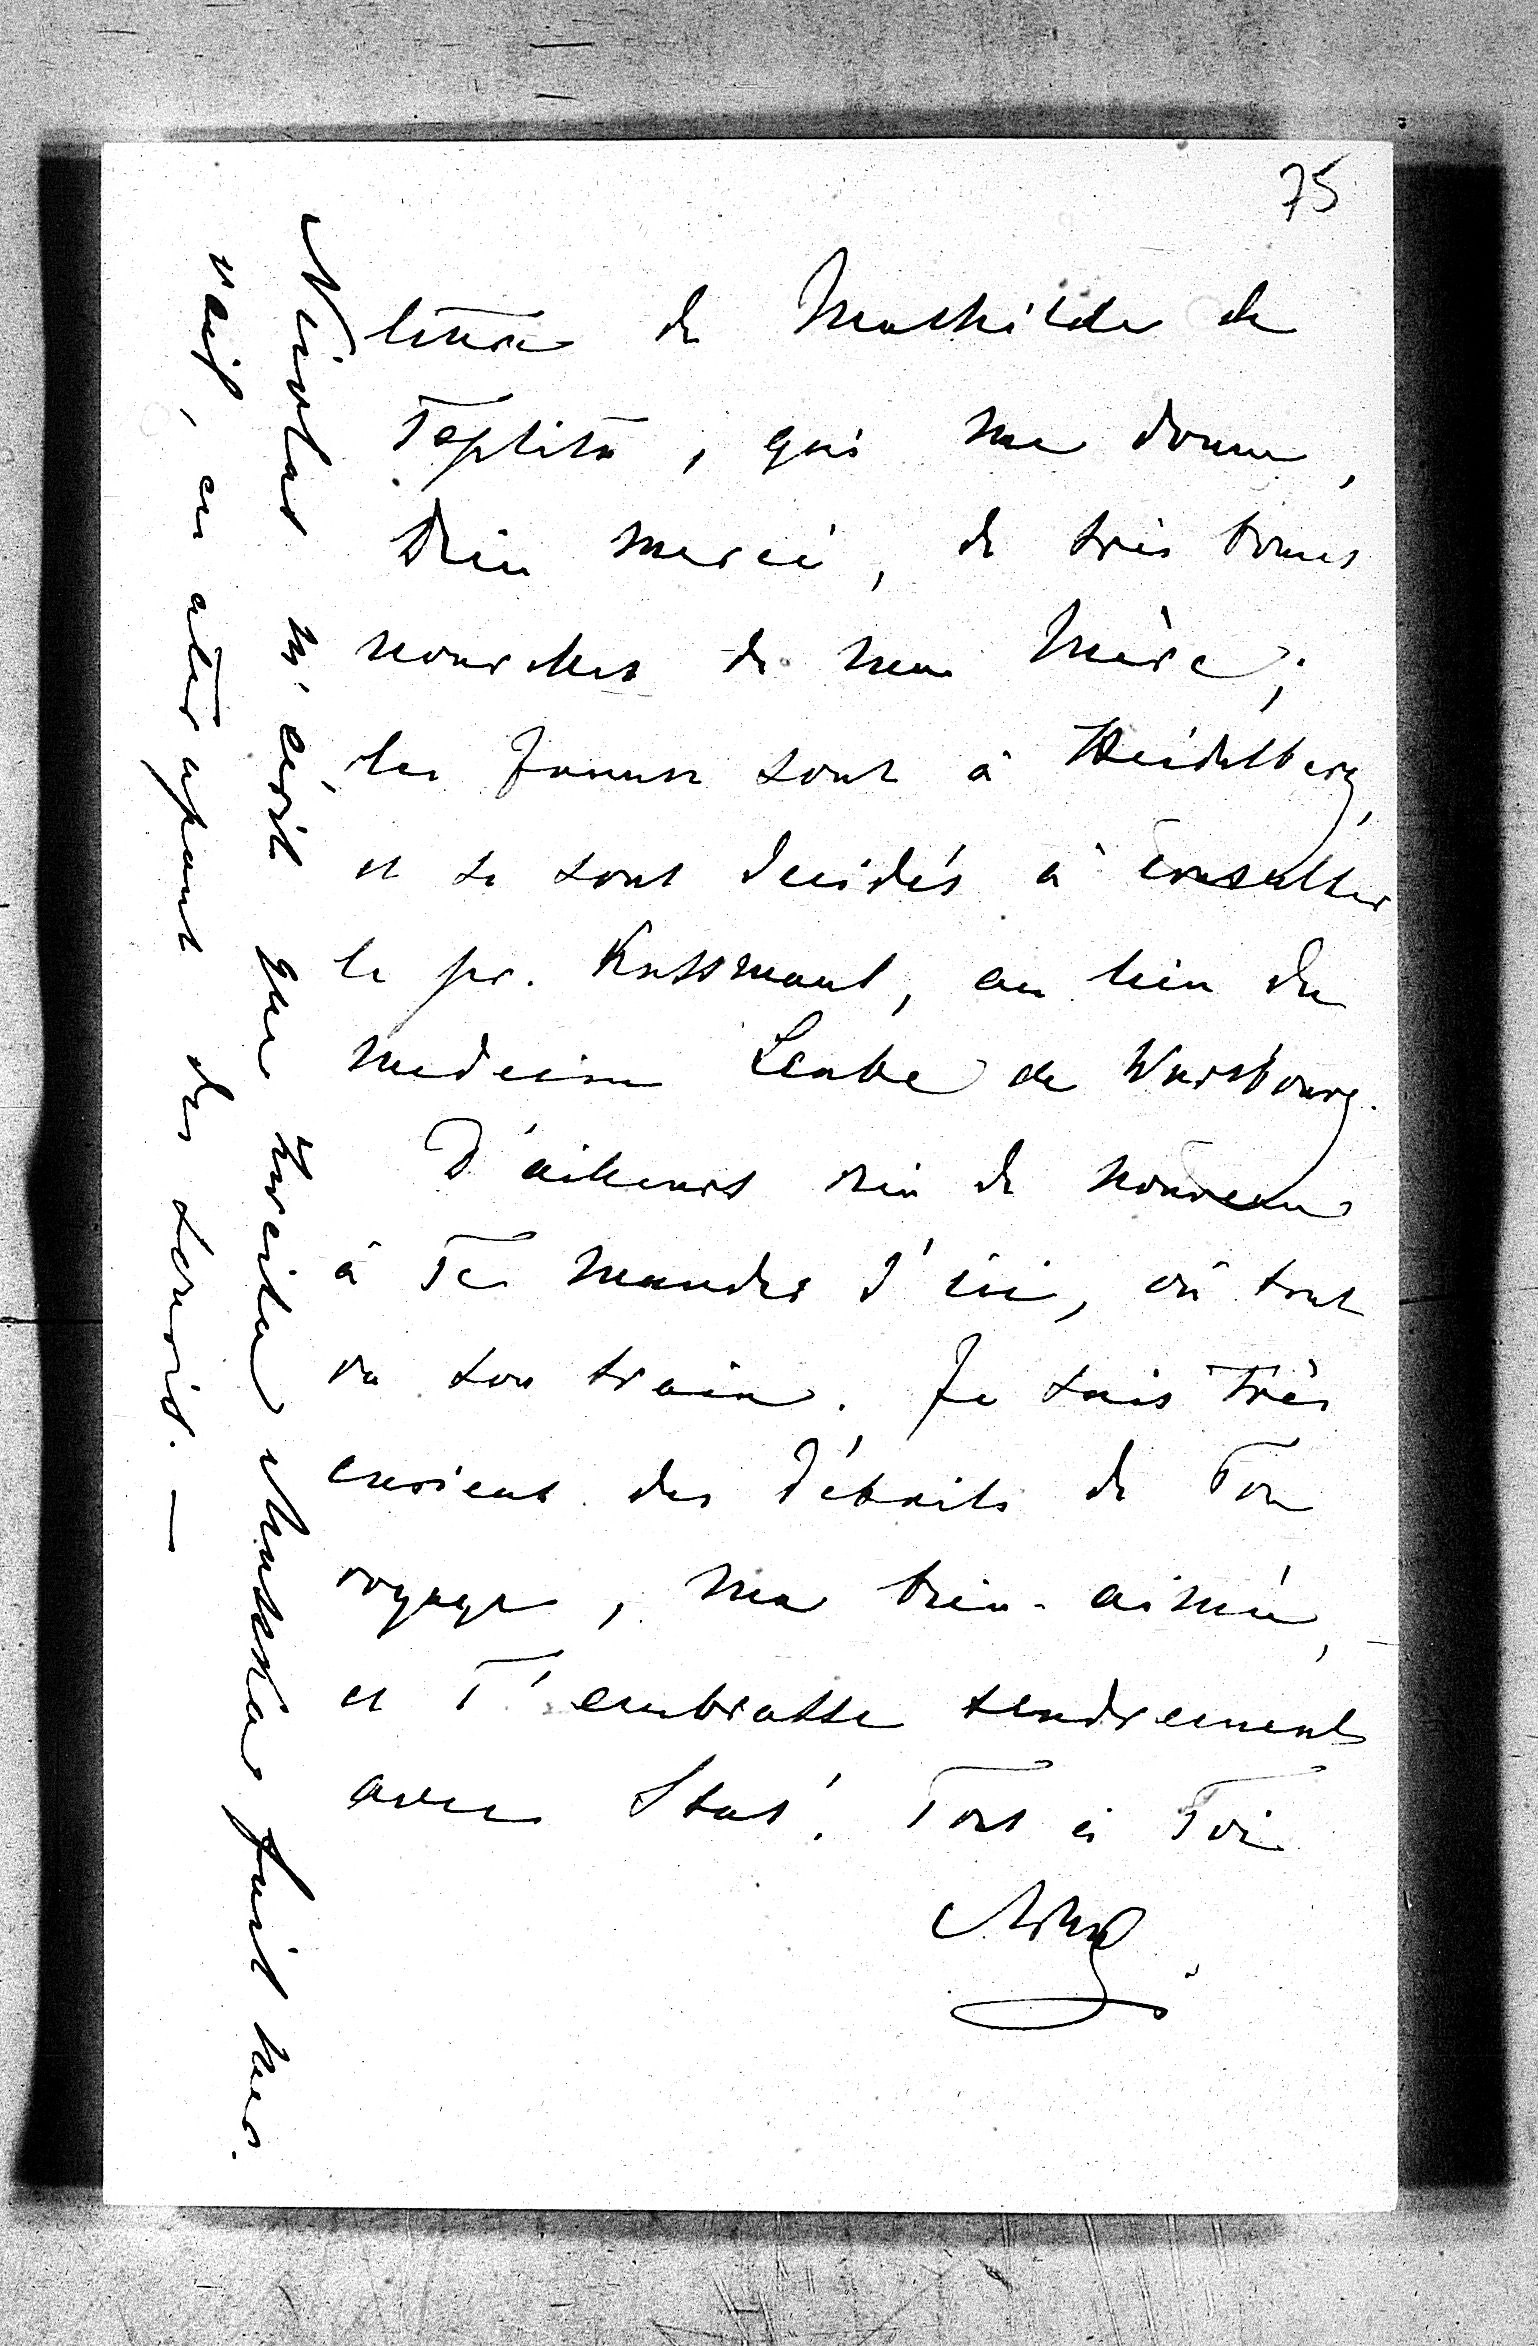 75
lettre de Mathilde de
Teplitz, qui me donne,
Dieu merci, de très bonnes
nouvelles de ma Mère;
les jeunes sont à Heidelberg,
et se sont decidés à consulter
le pr. Kussmaul, au lieu du
medecin Leube de Wursbourg.
D'ailleurs rien de nouveau
à Te mander d'ici, où tout
va son train. Je suis très
curieux des détails de Ton
voyage, ma bien-aimée,
et T'embrasse tendrement
avec Stas'. Tout à Toi
Nicolas m'écrit que fait mer-
veil, en attrapant des souris. —